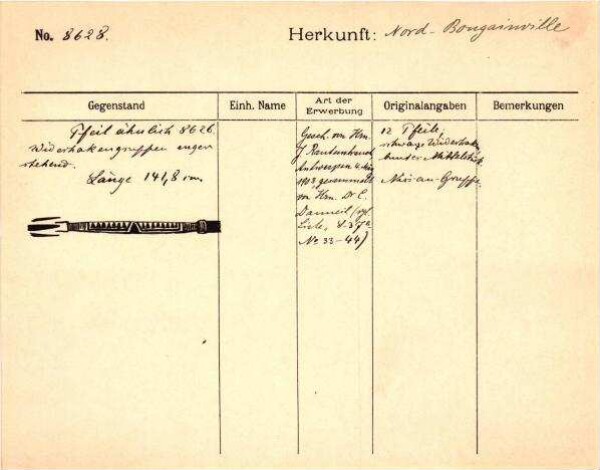 No. 8628.
Herkunft: Nord-Bougainville
Gegenstand
Einh. Name
Art der Erwerbung
Originalangaben
Bemerkungen
Pfeil ähnlich 8626.
Widerhakengruppen enger
stehend.
Länge 141,8 cm.
Gesch. von Hrn.
J.
Antwerpen
1903, gesammelt
von Hrn. Dr C.
Danneil (vgl.
Liste,
No 33-44)
12 Pfeile,
schwarze Widerhak.
bunter Mittelstück
Nissan-Gruppe.